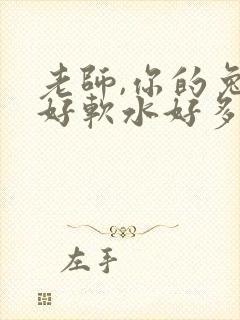 老師,你的兔
好軟水好多
左手